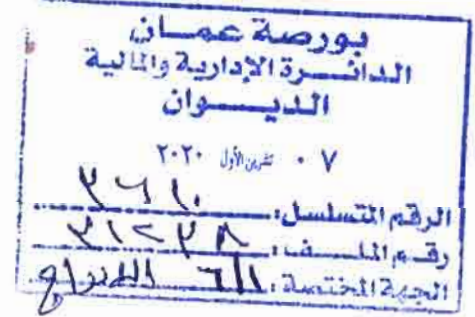 بورصة عمان
الدائرة الإدارية والمالية
الديوان
٠٧ تشرين الأول ٢٠٢٠
الرقم المتسلسل:
رقم الملف: ٣١٢٣٨
الجهة المختصة: